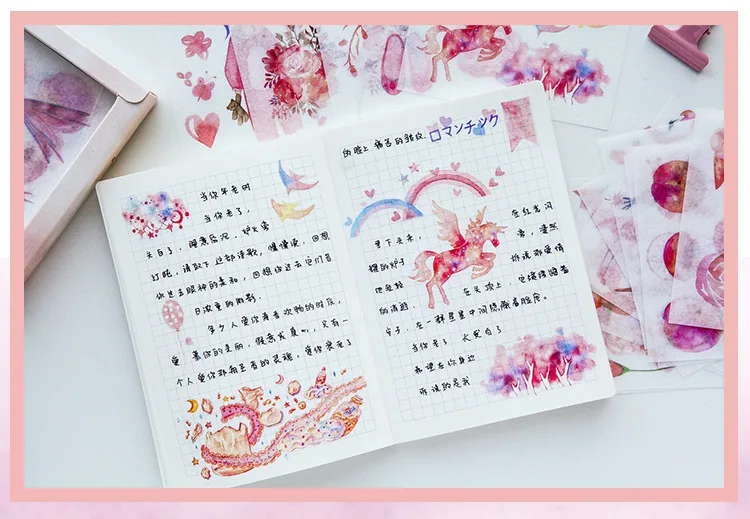 当你年老时
当你老了，
头白了，睡意昏沉，炉火旁
打盹，请取下这部诗歌，慢慢读，回想
你过去眼神的柔和，回想你过去它们
日浓重的阴影，
多少人爱你青春欢畅的时辰，
爱慕你的美丽，假意或真心，只有一
个人爱你那朝圣者的灵魂，爱你衰老了
的脸上痛苦的皱纹
ロマンチック
垂下头来，
在红光闪
耀的炉子
旁，凄然
地轻轻
诉说那爱情
的消逝，
在头顶上，它缓缓踱着
步子，在一群星星中间隐藏着脸庞。
当你老了 头发白了
希望在你身边
诉说的是我